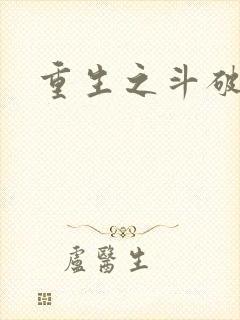 重生之斗破
盧醫生